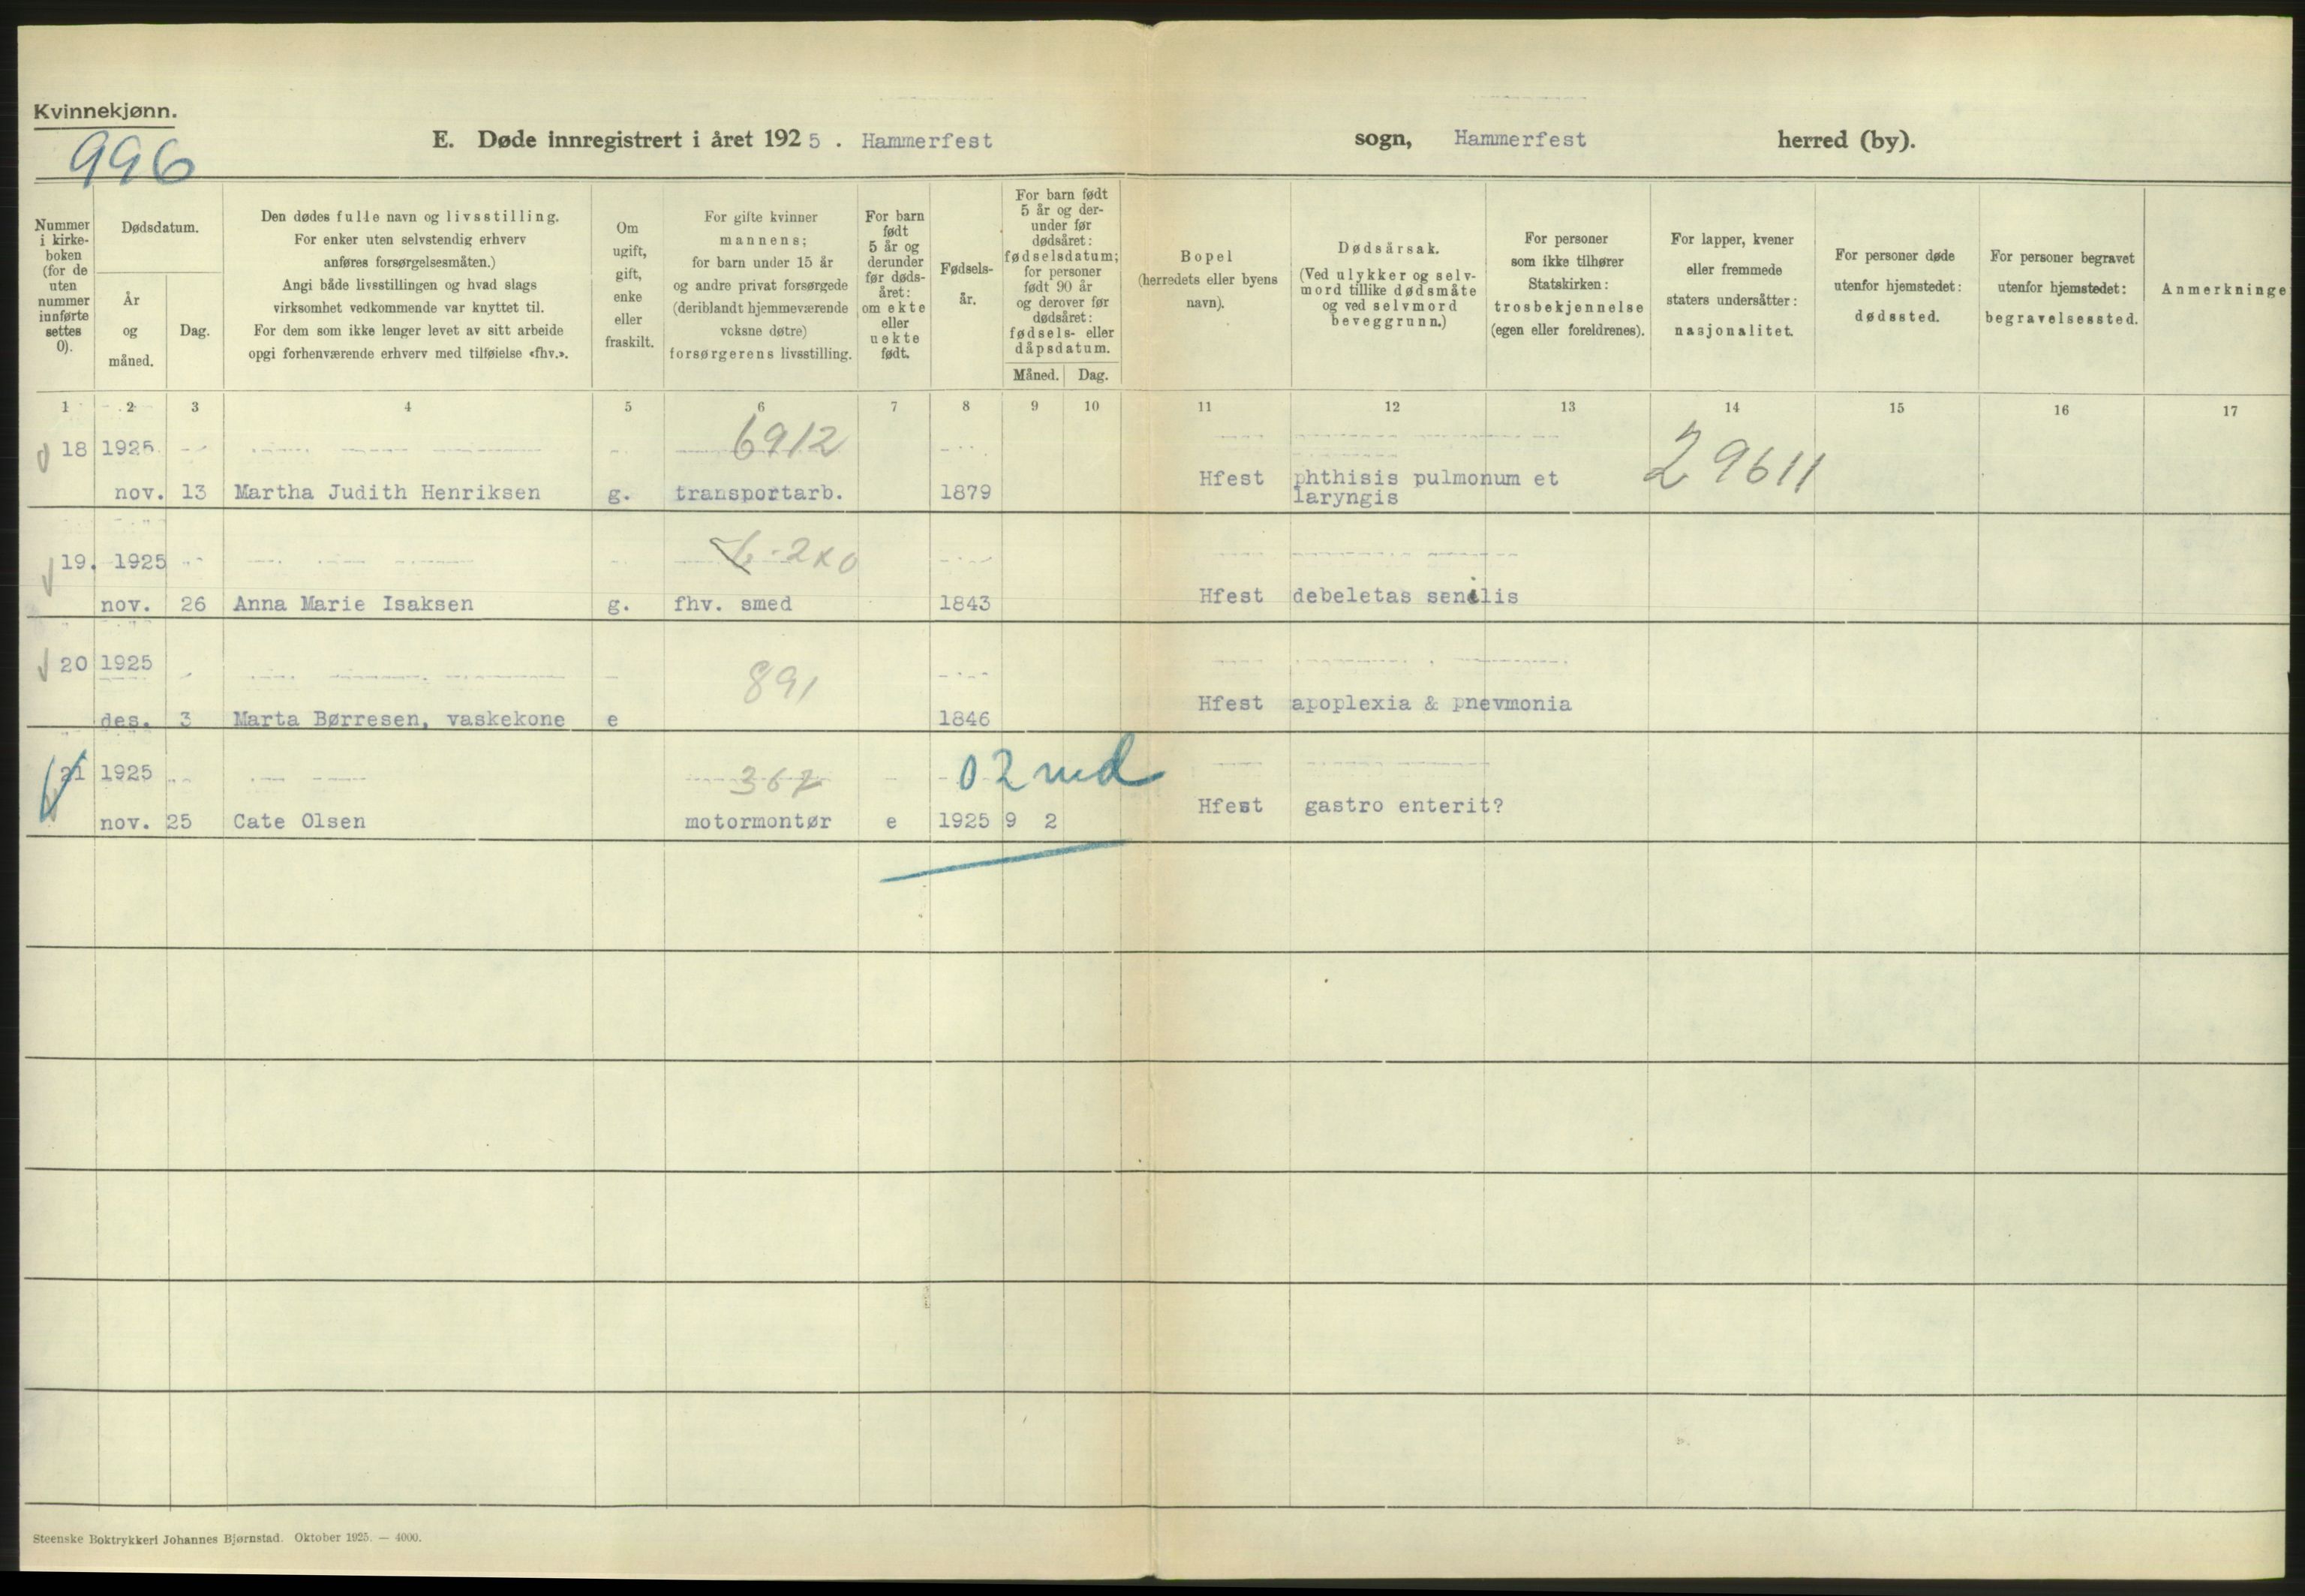 Kvinnekjønn.
996
E. Døde innregistrert i året 1925. Hammerfest sogn, Hammerfest herred (by).
Nummer i kirke- boken (for de uten nummer innførte settes 0).
Dødsdatum.
År og måned.
Dag.
Den dødes fulle navn og livsstilling.
For enker uten selvstendig erhverv
anføres forsørgelsesmåten.)
Angi både livsstillingen og hvad slags
virksomhet vedkommende var knyttet til.
For dem som ikke lenger levet av sitt arbeide
opgi forhenværende erhverv med tilføielse «fhv.».
Om ugift, gift, enke eller fraskilt.
For gifte kvinner
mannens;
for barn under 15 år
og andre privat forsørgede
(deriblandt hjemmeværende
voksne døtre)
forsørgerens livsstilling.
For barn født 5 år og derunder før døds- året: om ekte eller uekte født.
Fødsels- år.
For barn født
5 år og der-
under før
dødsåret:
fødselsdatum;
for personer
født 90 år
og derover før
dødsåret:
fødsels- eller
dåpsdatum.
Måned. Dag.
Bopel
(herredets eller byens
navn).
Dødsårsak.
(Ved ulykker og selv-
mord tillike dødsmåte
og ved selvmord
beveggrunn.)
For personer
som ikke tilhører
Statskirken:
trosbekjennelse
(egen eller foreldrenes).
For lapper, kvener
eller fremmede
staters undersåtter:
nasjonalitet.
For personer døde
utenfor hjemstedet:
dødssted.
For personer begravet
utenfor hjemstedet:
begravelsessted.
Anmerkninge
1 2 3 4 5 6 7 8 9 10 11 12 13 14 15 16 17
18 1925. 6912 29611
nov. 13 Martha Judith Henriksen g. transportarb. 1879 Hfest phthisis pulmonum et
laryngis
19. 1925
nov. 26 Anna Marie Isaksen g. fhv. smed 1843 Hfest debeletas senilis
20 1925 891
des. 3 Marta Børresen, vaskekone e 1846 Hfest apoplexia & pnevmonia
21 1925 367 02 md
nov. 25 Cate Olsen motormontør e 1925 9 2 Hfest gastro enterit?
Steenske Boktrykkeri Johannes Bjørnstad. Oktober 1925. — 4000.